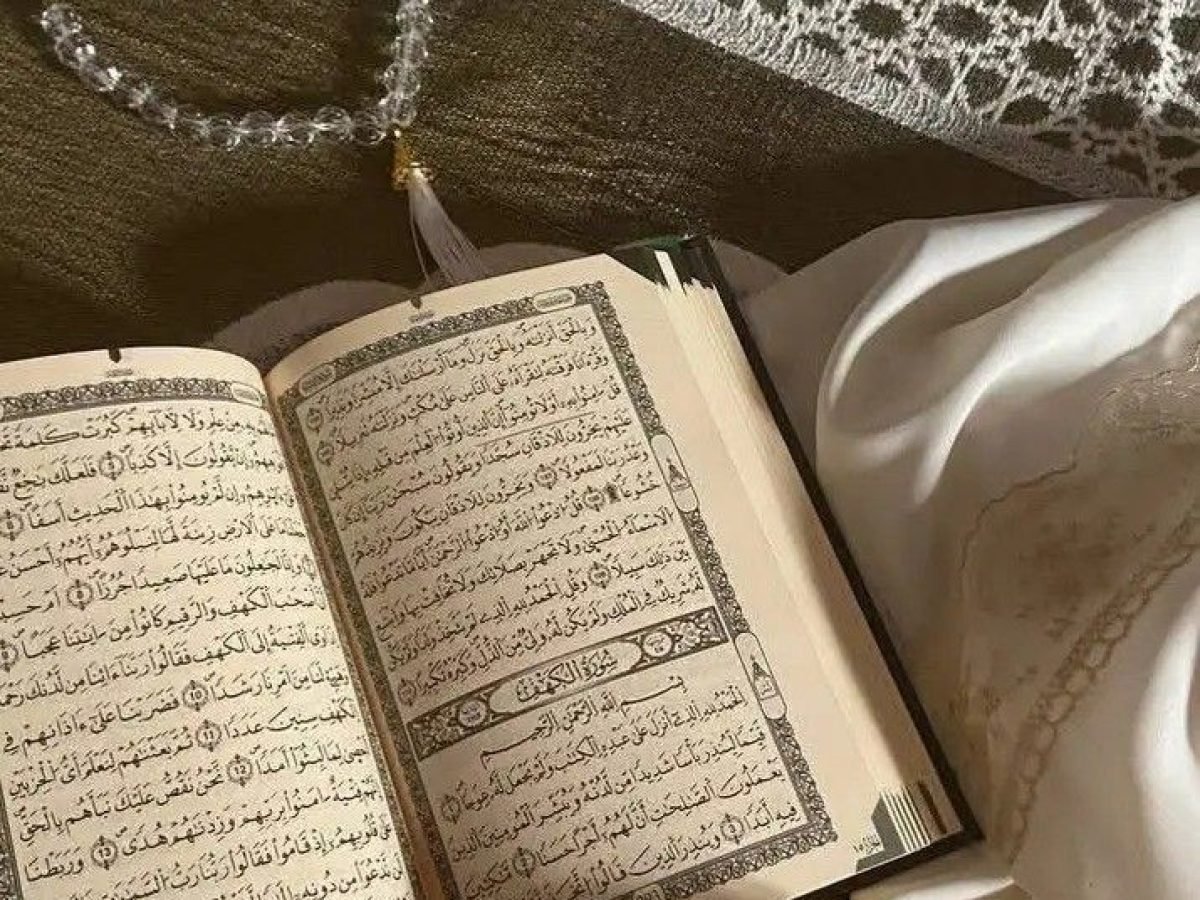 وَبِالْحَقِّ أَنزَلْنَٰهُ وَبِالْحَقِّ نَزَلَ وَمَا أَرْسَلْنَٰكَ إِلَّا مُبَشِّرًا وَنَذِيرًا ١٠٥
وَقُرْءَانًا فَرَقْنَٰهُ لِتَقْرَأَهُ عَلَى النَّاسِ عَلَىٰ مُكْثٍ وَنَزَّلْنَٰهُ تَنزِيلًا ١٠٦
قُلْ ءَامِنُوا بِهِ أَوْ لَا تُؤْمِنُوا إِنَّ الَّذِينَ أُوتُوا الْعِلْمَ مِن قَبْلِهِ إِذَا يُتْلَىٰ
عَلَيْهِمْ يَخِرُّونَ لِلْأَذْقَانِ سُجَّدًا وَيَقُولُونَ سُبْحَٰنَ رَبِّنَا إِن كَانَ
وَعْدُ رَبِّنَا لَمَفْعُولًا ١٠٨ وَيَخِرُّونَ لِلْأَذْقَانِ يَبْكُونَ وَيَزِيدُهُمْ
خُشُوعًا ۩ ١٠٩ قُلِ ادْعُوا اللَّهَ أَوِ ادْعُوا الرَّحْمَٰنَ أَيًّا مَّا تَدْعُوا فَلَهُ
الْأَسْمَاءُ الْحُسْنَىٰ وَلَا تَجْهَرْ بِصَلَاتِكَ وَلَا تُخَافِتْ بِهَا وَابْتَغِ
بَيْنَ ذَٰلِكَ سَبِيلًا ١١٠ وَقُلِ الْحَمْدُ لِلَّهِ الَّذِي لَمْ يَتَّخِذْ وَلَدًا وَلَمْ يَكُن
لَّهُ شَرِيكٌ فِي الْمُلْكِ وَلَمْ يَكُن لَّهُ وَلِيٌّ مِّنَ الذُّلِّ وَكَبِّرْهُ تَكْبِيرًا ١١١
سُورَةُ الْكَهْفِ
بِسْمِ اللَّهِ الرَّحْمَٰنِ الرَّحِيمِ
الْحَمْدُ لِلَّهِ الَّذِي أَنزَلَ عَلَىٰ عَبْدِهِ الْكِتَٰبَ وَلَمْ يَجْعَل لَّهُ عِوَجًا ١
قَيِّمًا لِّيُنذِرَ بَأْسًا شَدِيدًا مِّن لَّدُنْهُ وَيُبَشِّرَ الْمُؤْمِنِينَ الَّذِينَ
يَعْمَلُونَ الصَّٰلِحَٰتِ أَنَّ لَهُمْ أَجْرًا حَسَنًا ٢ مَّٰكِثِينَ
فِيهِ أَبَدًا ٣ وَيُنذِرَ الَّذِينَ قَالُوا اتَّخَذَ
مِنْ عِلْمٍ وَلَا لِءَابَائِهِمْ كَبُرَتْ كَلِمَةً
إِن يَقُولُونَ إِلَّا كَذِبًا ٥ فَلَعَلَّكَ بَٰخِعٌ
ءَاثَٰرِهِمْ إِن لَّمْ يُؤْمِنُوا بِهَٰذَا الْحَدِيثِ أَسَفًا ٦
عَلَى الْأَرْضِ زِينَةً لَّهَا لِنَبْلُوَهُمْ أَيُّهُمْ أَحْسَنُ
وَإِنَّا لَجَٰعِلُونَ مَا عَلَيْهَا صَعِيدًا جُرُزًا ٨ أَمْ حَسِبْتَ
أَصْحَٰبَ الْكَهْفِ وَالرَّقِيمِ كَانُوا مِنْ ءَايَٰتِنَا عَجَبًا ٩
أَوَى الْفِتْيَةُ إِلَى الْكَهْفِ فَقَالُوا رَبَّنَا ءَاتِنَا مِن لَّدُنكَ رَحْمَةً
وَهَيِّئْ لَنَا مِنْ أَمْرِنَا رَشَدًا ١٠ فَضَرَبْنَا عَلَىٰ ءَاذَانِهِمْ فِي
الْكَهْفِ سِنِينَ عَدَدًا ١١ ثُمَّ بَعَثْنَٰهُمْ لِنَعْلَمَ أَيُّ الْحِزْبَيْنِ
أَحْصَىٰ لِمَا لَبِثُوا أَمَدًا ١٢ نَّحْنُ نَقُصُّ عَلَيْكَ نَبَأَهُم بِالْحَقِّ
إِنَّهُمْ فِتْيَةٌ ءَامَنُوا بِرَبِّهِمْ وَزِدْنَٰهُمْ هُدًى ١٣ وَرَبَطْنَا
عَلَىٰ قُلُوبِهِمْ إِذْ قَامُوا فَقَالُوا رَبُّنَا رَبُّ السَّمَٰوَٰتِ
لَن نَّدْعُوَا مِن دُونِهِ إِلَٰهًا